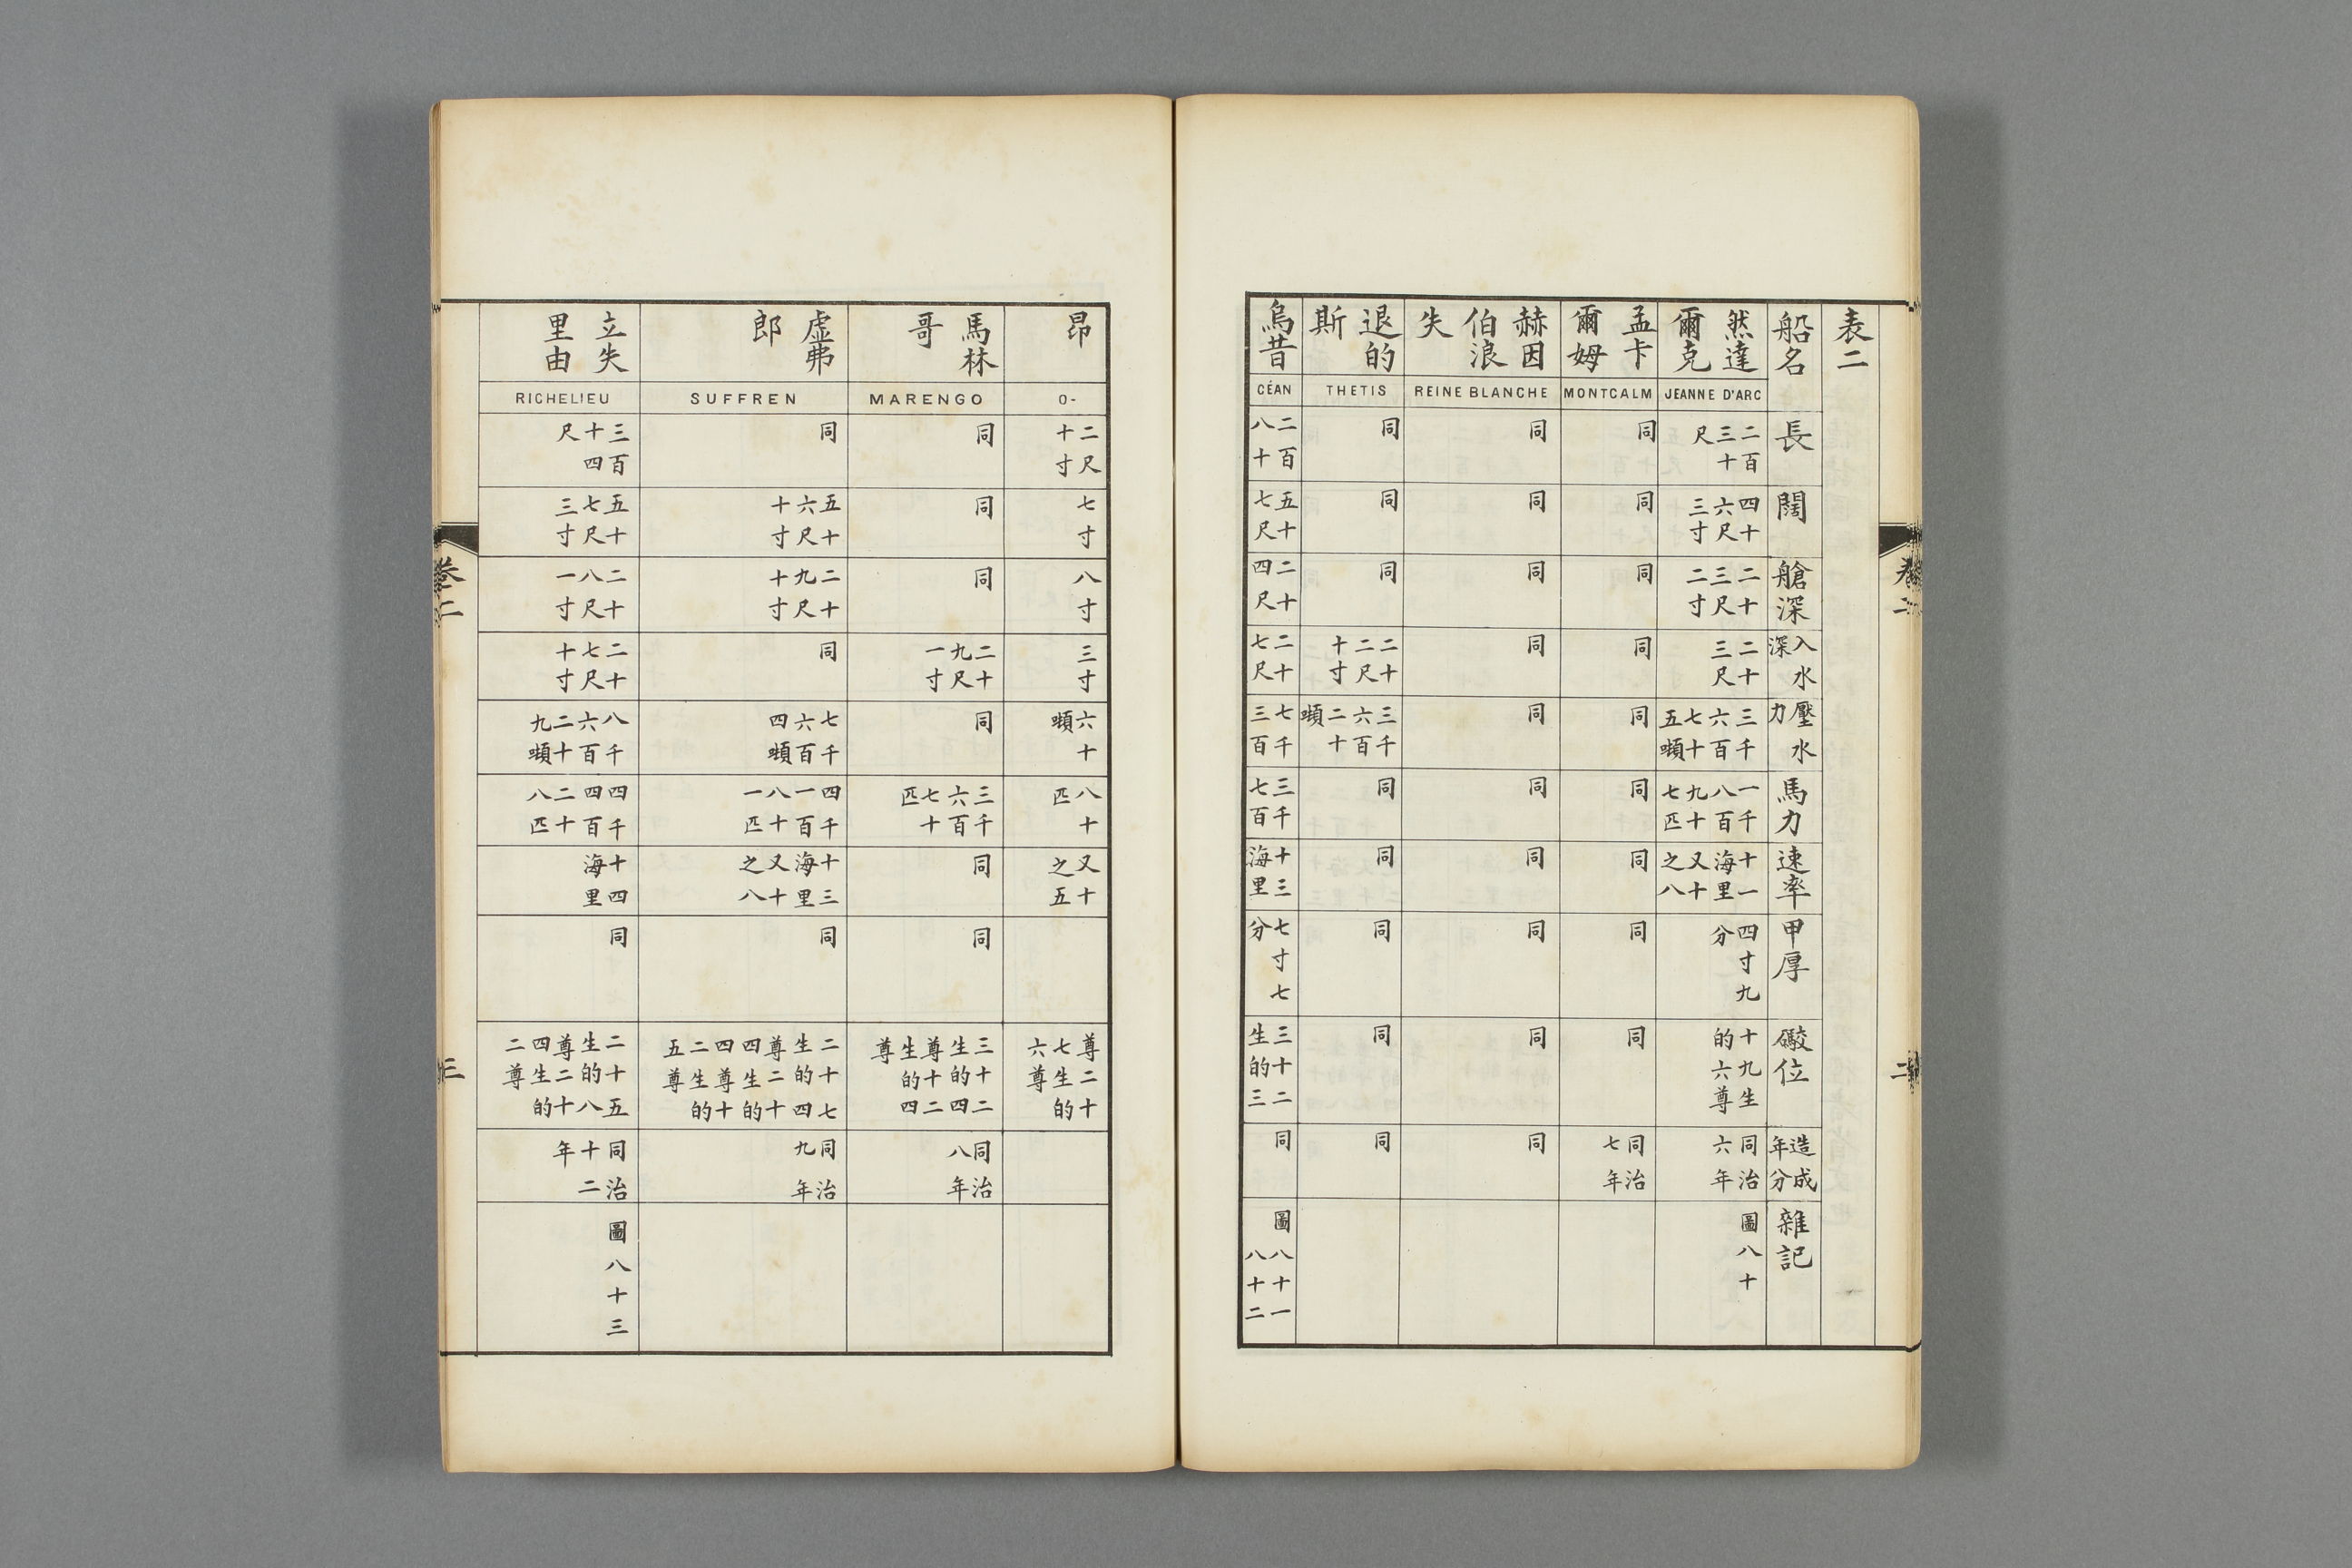 表二
船名
長
闊
艙深
入水深
壓水力
馬力
速率
甲厚
礮位
造成年分
雜記
然達爾克
JEANNE D'ARC
二百三十尺
四十六尺三寸
二十三尺二寸
二十三尺
三千六百七十五噸
一千八百九十七匹
十一海里又十之八
四寸九分
十九生的六尊
同治六年
圖八十
孟卡爾姆
MONTCALM
同
同
同
同
同
同
同
同
同
同治七年
赫因伯浪失
REINE BLANCHE
同
同
同
同
同
同
同
同
同
同
退的斯
THETIS
同
同
同
二十二尺十寸
三千六百二十噸
同
同
同
同
同
烏昔
CÉAN
二百八十
五十七尺
二十四尺
二十七尺
七千三百
三千七百
十三海里
七寸七分
三十二生的三
同
圖八十一
八十二
卷二
二
昂
O-
二尺十寸
七寸
八寸
三寸
六十噸
八十匹
又十之五
尊二十七生的六尊
馬林哥
MARENGO
同
同
同
二十九尺一寸
同
三千六百七十匹
同
同
三十二生的四尊十二生的四尊
同治八年
虛弗郎
SUFFREN
同
五十六尺十寸
二十九尺十寸
同
七千六百四噸
四千一百八十一匹
十三海里又十之八
同
二十七生的四尊二十四生的四尊十二生的五尊
同治九年
立失里由
RICHELIEU
三百十四尺
五十七尺三寸
二十八尺一寸
二十七尺十寸
八千六百二十九噸
四千四百二十八匹
十四海里
同
二十五生的八尊二十四生的二尊
同治十二年
圖八十三
卷二
三